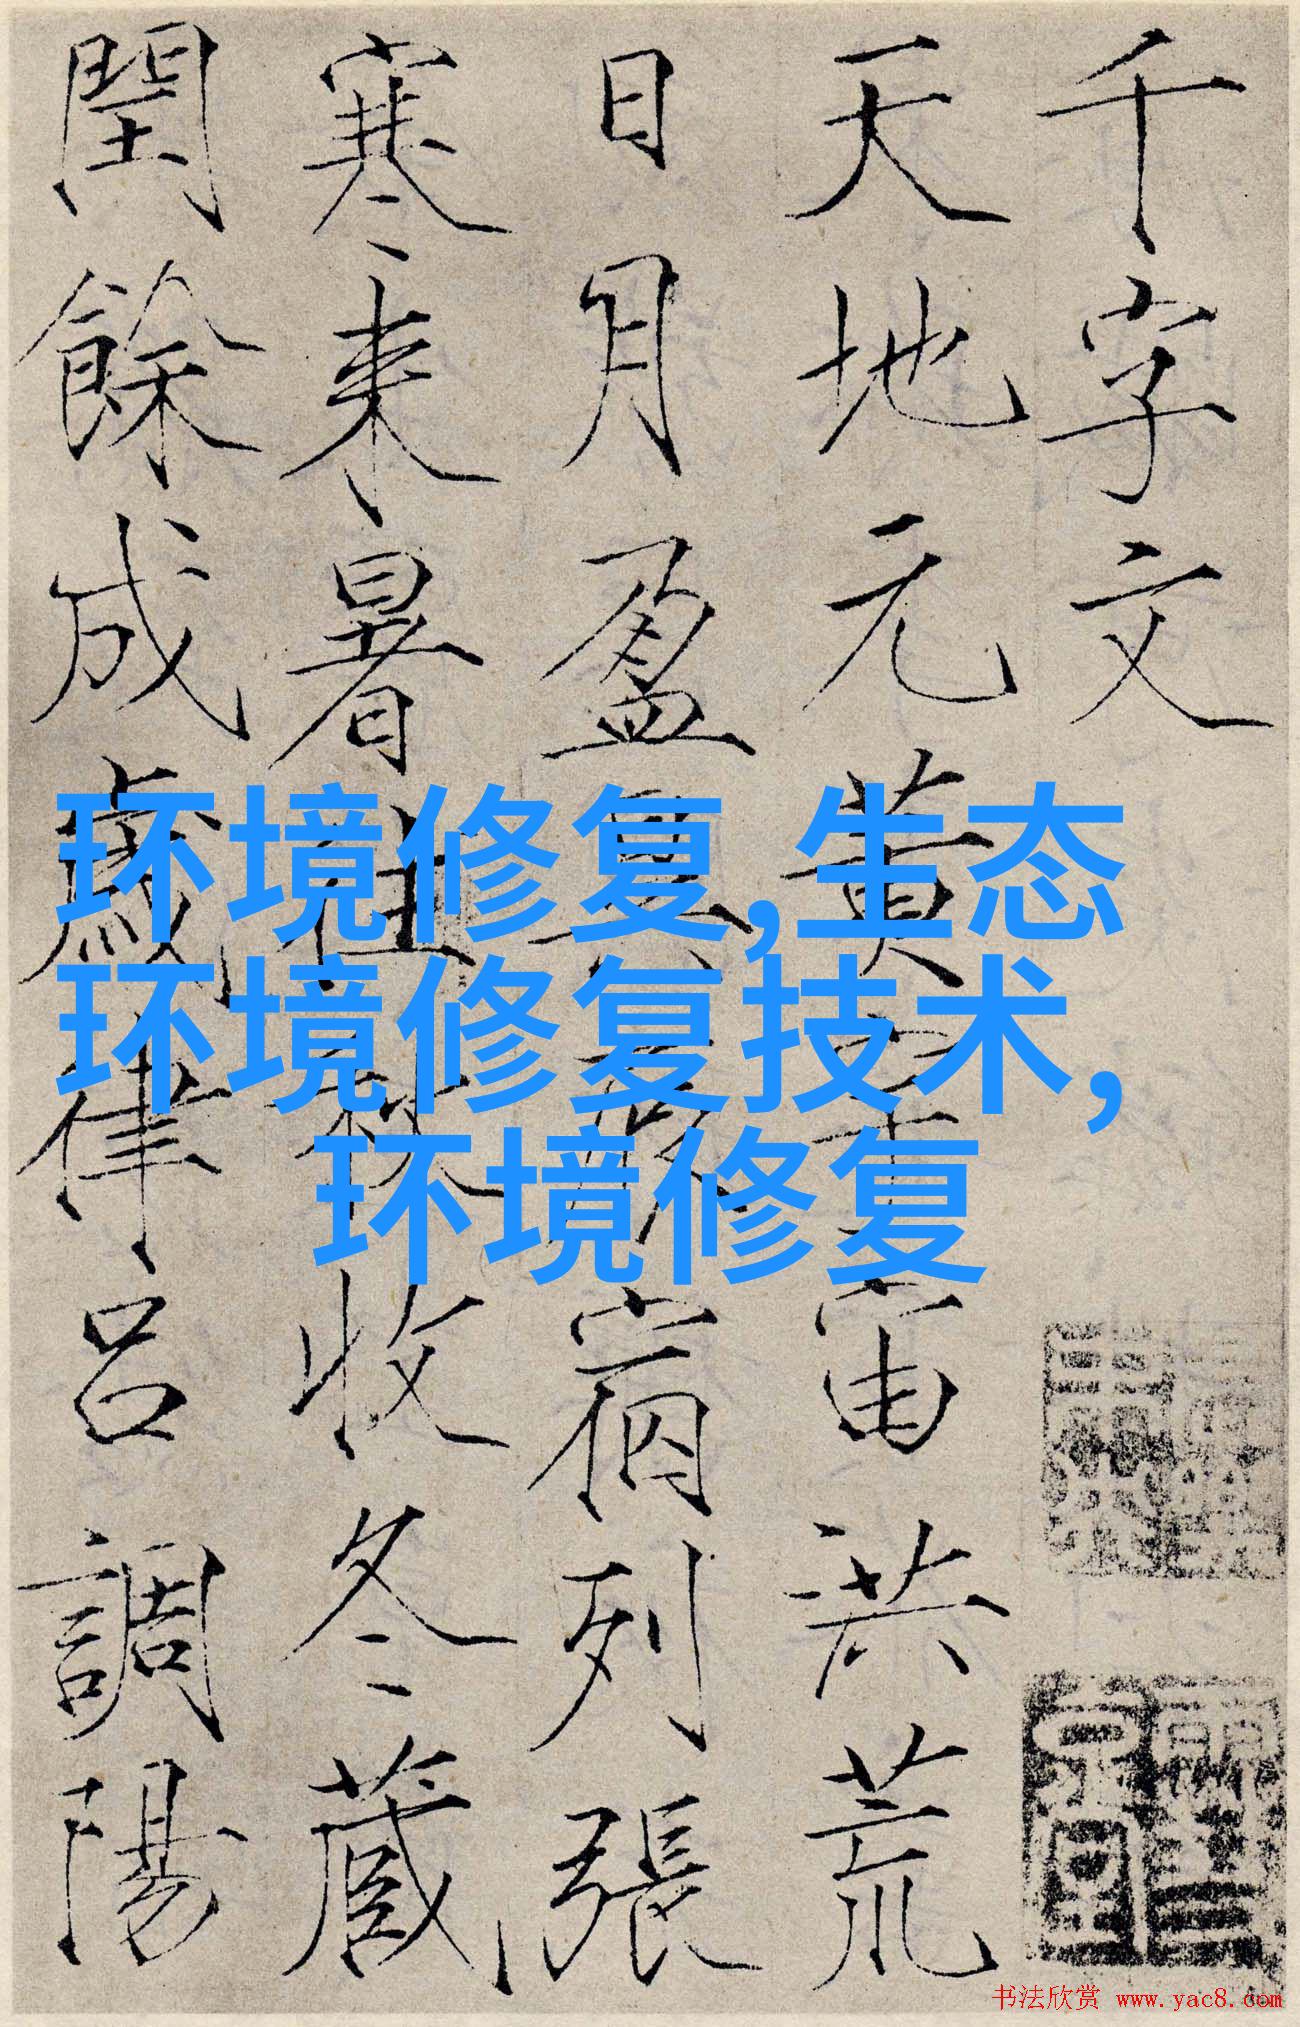 千字文
天地元黃宇宙洪荒
日月盈昃辰宿列張
寒来暑往秋收冬藏
閏餘成歲律呂調陽
环境修复,生态
环境修复技术,
环境修复
书法欣赏 www.yac8.com